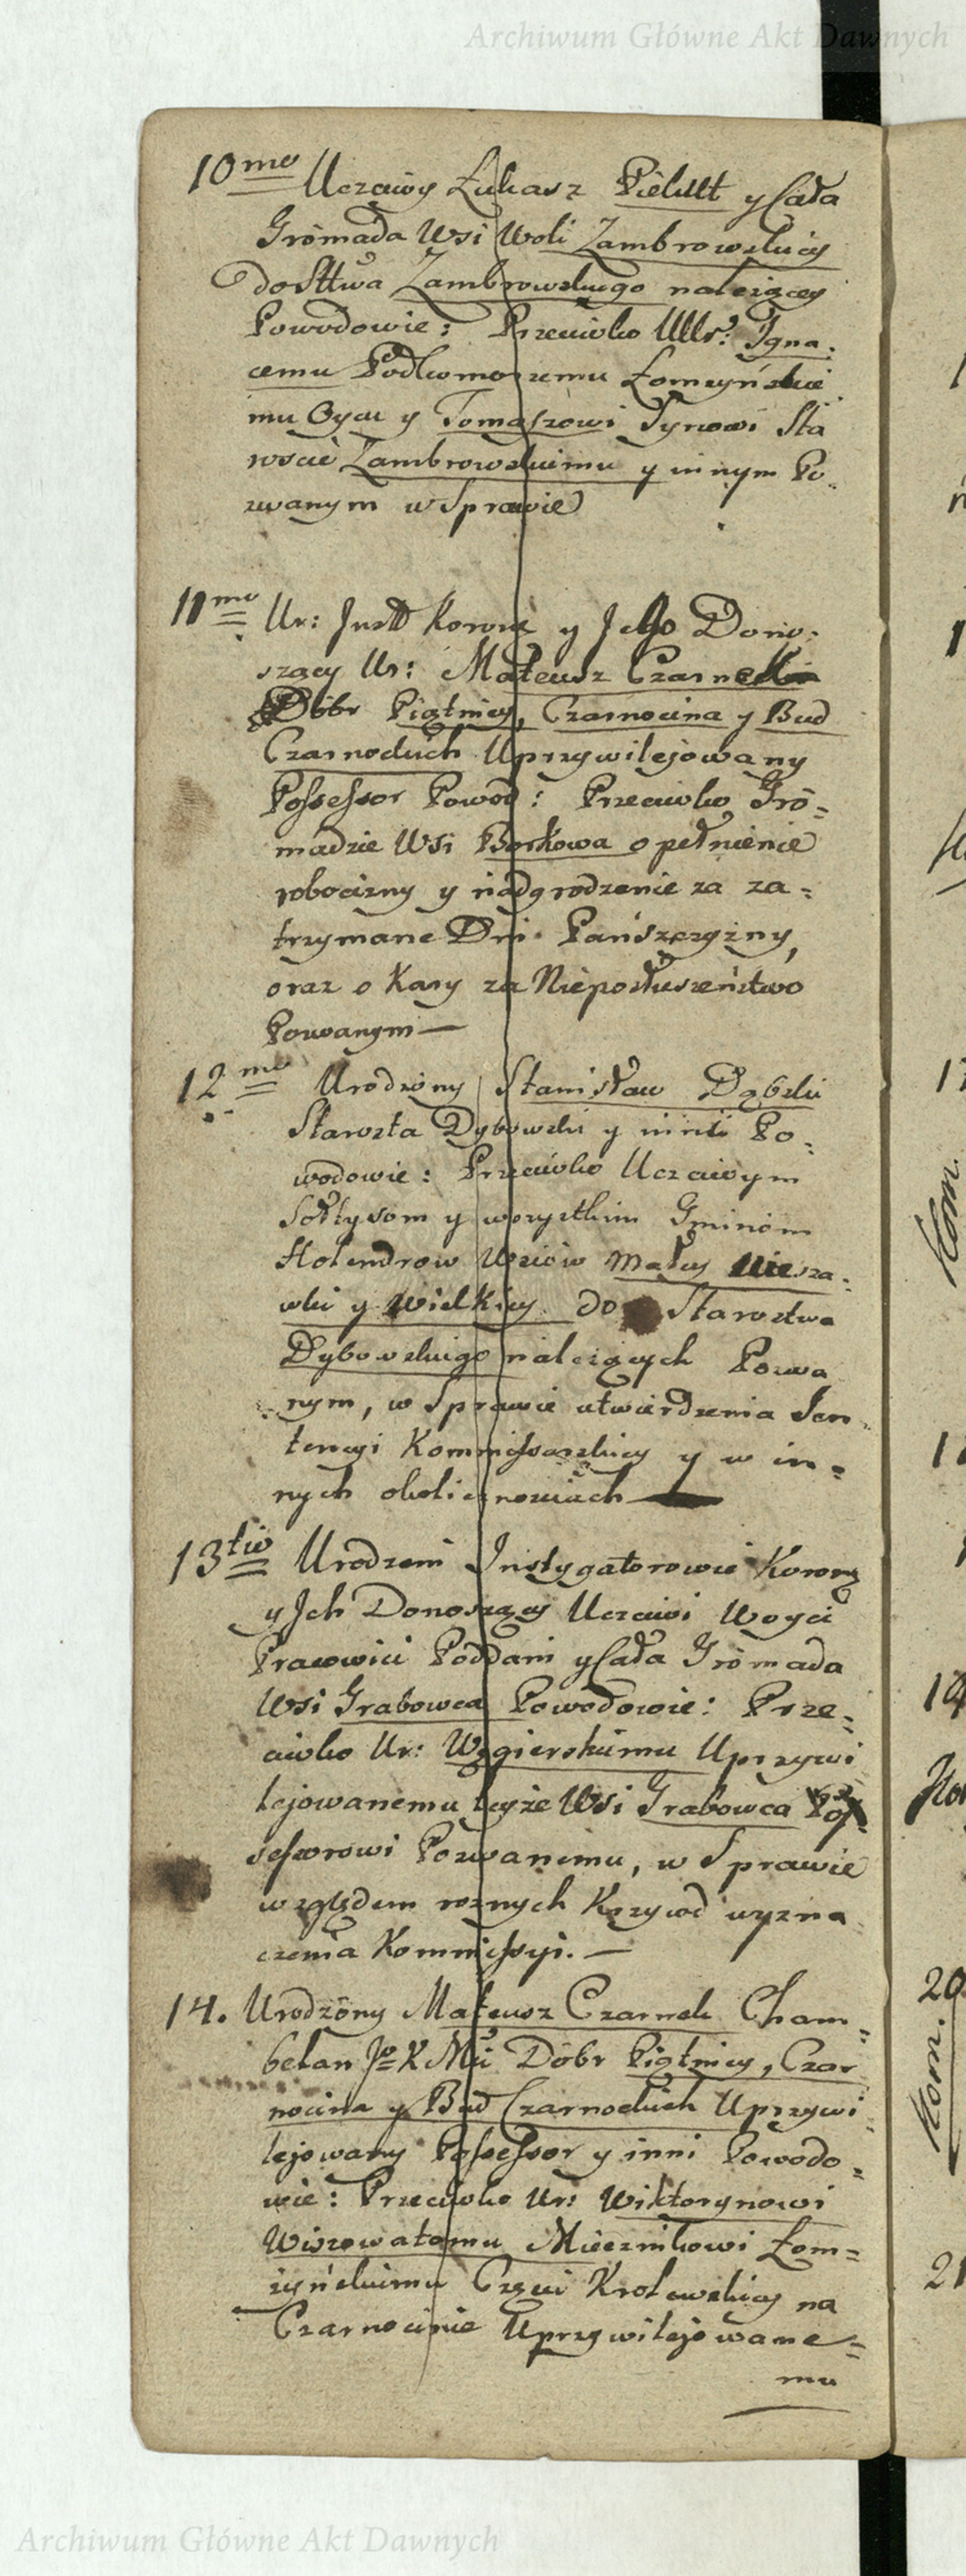 Archiwum Główne Akt Dawnych
10mo Uczciwy Łukasz Pielutt y Cała
Gromada Wsi Woli Zambrowskiey
do Sttwa Zambrowskiego należącey
Powodowie: Przeciwko UUr: Igna:
cemu Podkomorzemu Łomzyńskie
mu Oycu y Tomaszowi Synowi Sta
roscie Zambrowskiemu y innym Po:
zwanym w Sprawie
11mo Ur: Instt Koronę y Jego Dono:
szący Ur: Mateusz Czarnecki
Dóbr Piątnicy, Czarnocina y Bud
Czarnockich Uprzywilejowany
Possessor Powod: Przeciwko Gro=
madzie Wsi Borkowa o pełnienie
robocizny y nadgrodzenie za za=
trzymane Dni Pańszczyzny,
oraz o Kary za Nieposłuszeństwo
Pozwanym —
12mo Urodzony Stanisław Dąbski
Starosta Dybowski y inni Po=
wodowie: Przeciwko Uczciwym
Sołtysom y wszystkim Gminom
Holendrow Wsiów Małey Niesza:
wki y Wielkiey do Starostwa
Dybowskiego należących Pozwa
nym, w Sprawie utwierdzenia Sen
tencyi Kommissarskiey y w in=
nych okolicznościach —
13tio Urodzeni Instygatorowie Korony
y Jch Donoszący Uczciwi Woyci
Pracowici Poddani y Cała Gromada
Wsi Grabowca Powodowie: Prze=
ciwko Ur: Węgierskiemu Uprzywi
lejowanemu teyże Wsi Grabowca Pos
sessorowi Pozwanemu, w Sprawie
względem roznych Krzywd wyzna
czenia Kommissyi. —
14. Urodzony Mateusz Czarnek Cham=
belan Jo K Mci Dóbr Piątnicy, Czar
nocina y Bud Czarnockich Uprzywi
lejowany Possessor y inni Powodo=
wie: Przeciwko Ur: Wiktorynowi
Wiszowatemu Miecznikowi Łom=
żyńskiemu Części Krolewskiey na
Czarnocinie Uprzywilejowane=
mu
Archiwum Główne Akt Dawnych